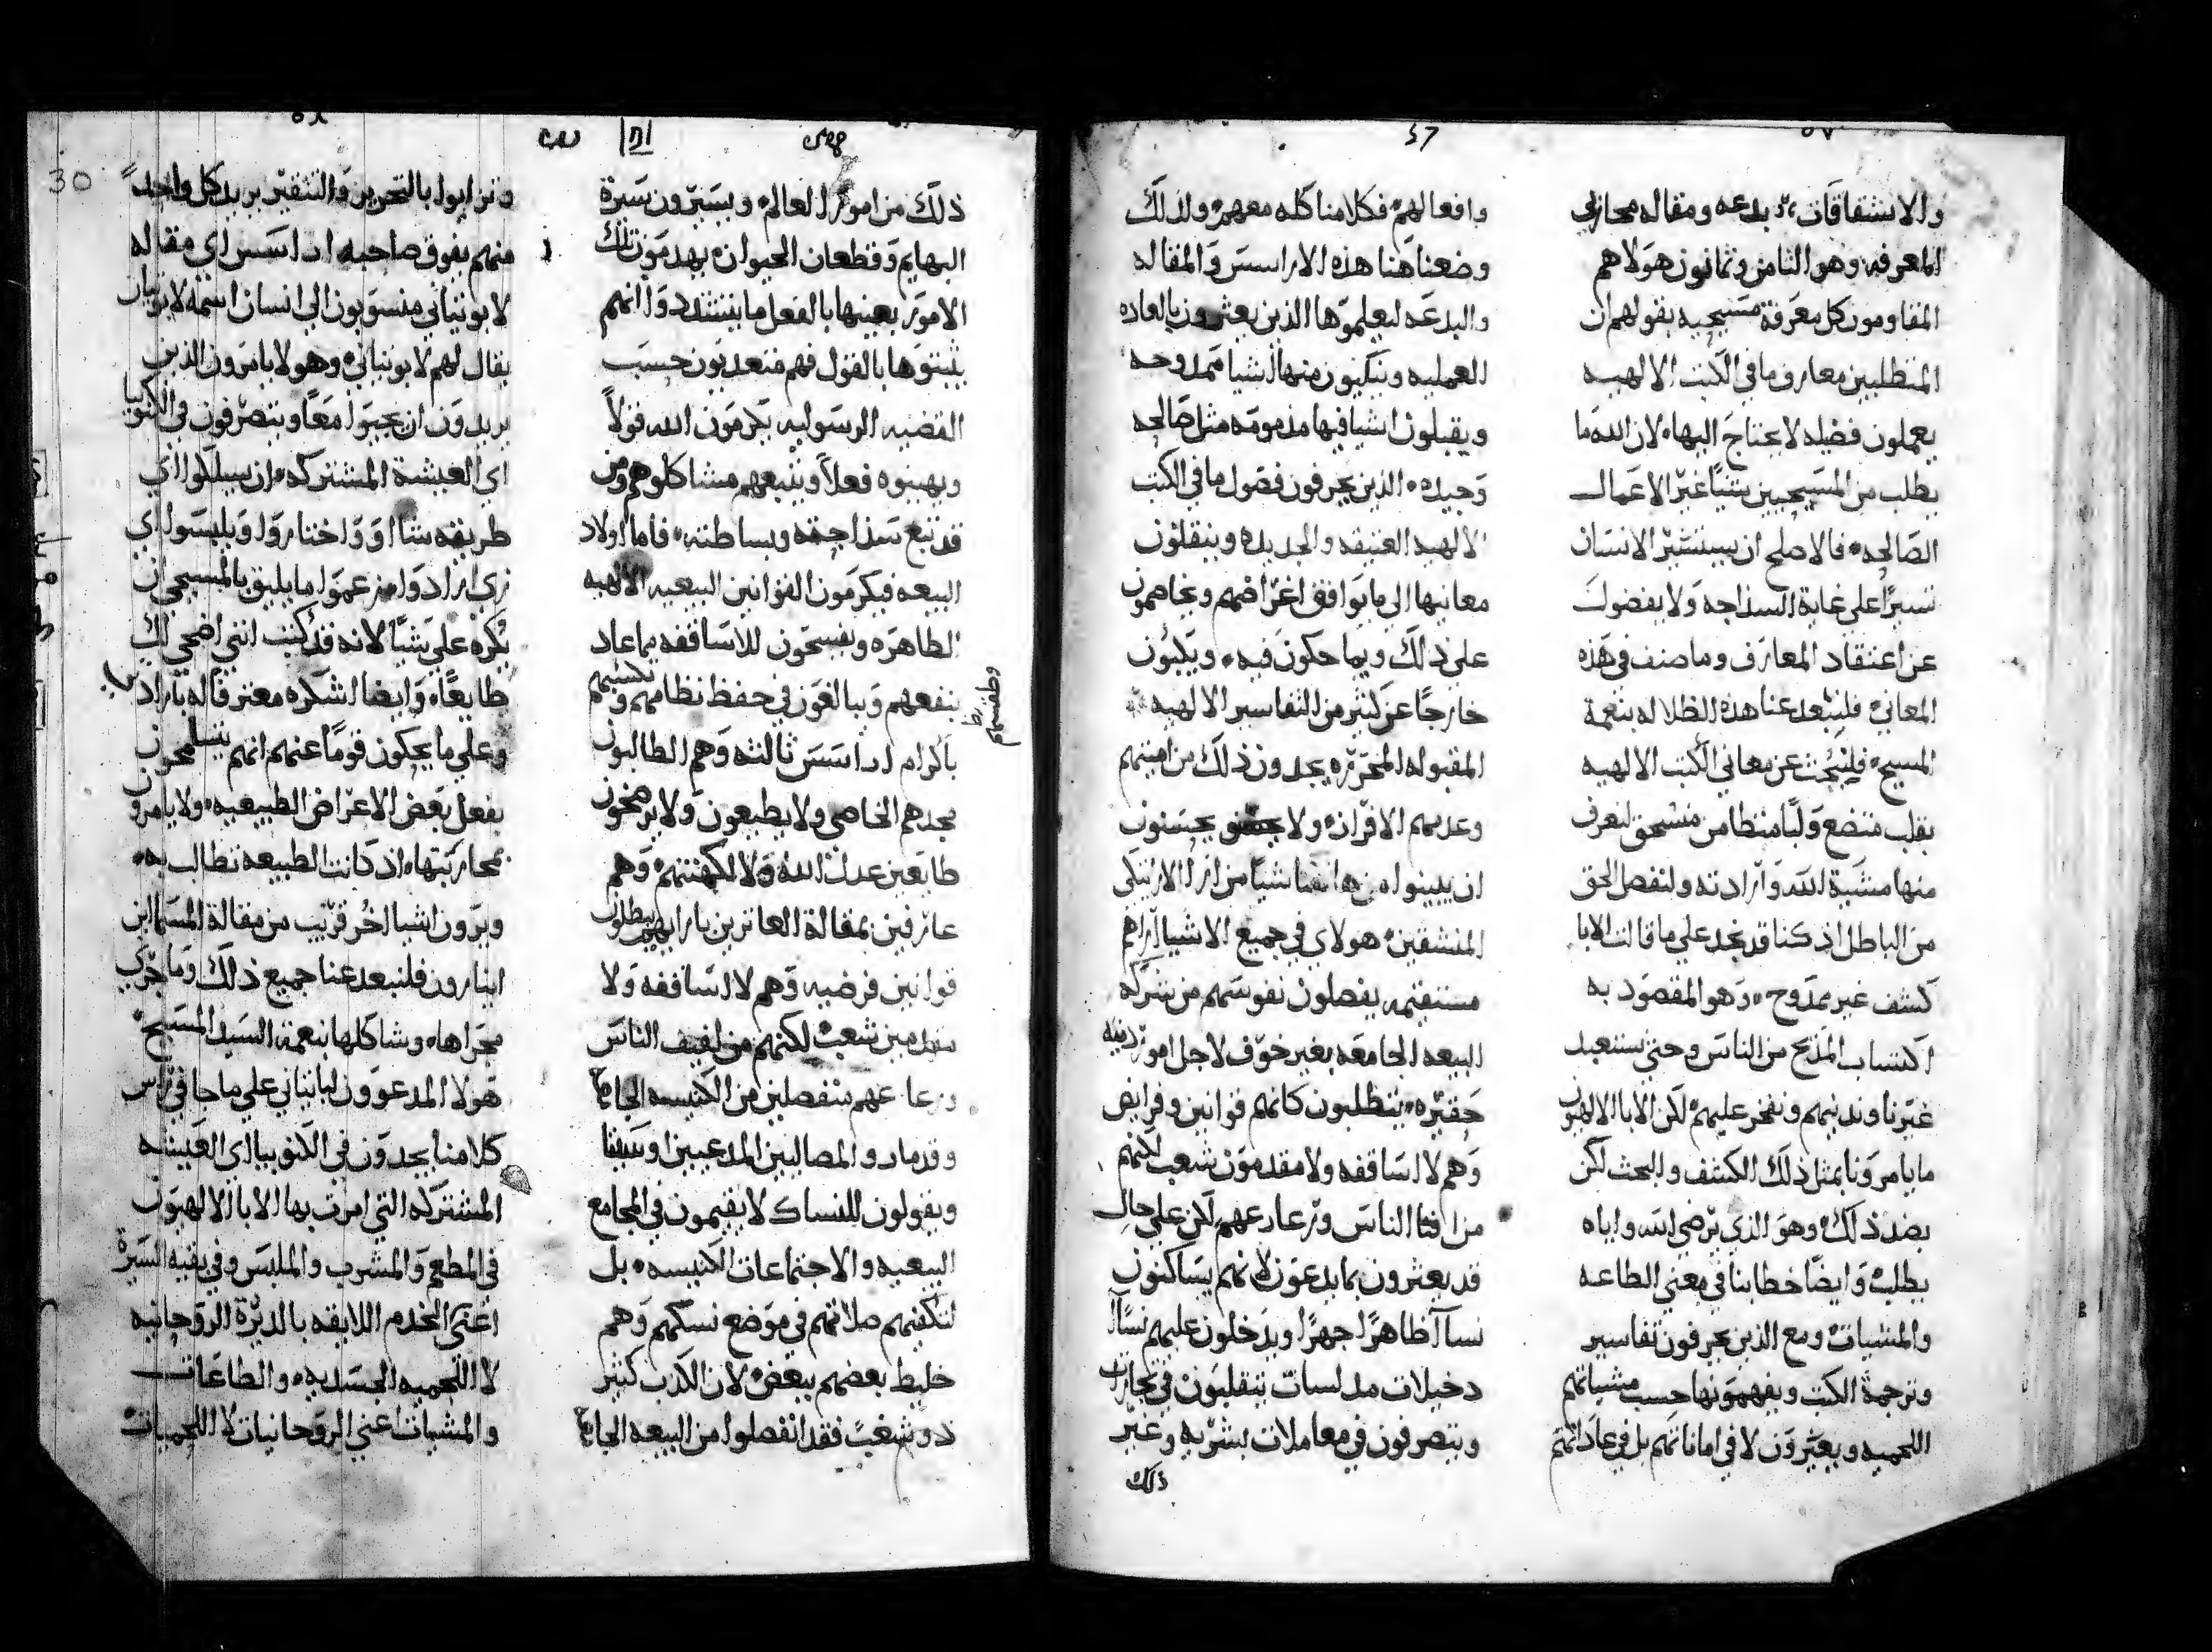 والانشقاقات بدعه ومقاله محاربي
المعرفه وهو الثامن وثمانون هولاهم
المقاومون كل معرفة مسيحيه بقولهم ان
المتطلبين معارف ما في الكتب الالهيه
يعملون فضله لا يحتاج اليها لان الله ما
يطلب من المسيحيين شيًا غير الاعمال
الصالحه فالاصلح ان يستسير الانسان
على غاية السداجه ولا بفضول
عن اعتقاد المعارف وما صنف في هذه
المعاني فليبعد عنا هذه الظلاله بنعمة
المسيح فلنبحث عن معاني الكتب الالهيه
بقلب متضع ولبًا متطامن منسحق لنعرف
منها مشية الله وارادته ولنفصل الحق
من الباطل اذ كنا قد نجد على ما قالت الابا
كشف غير ممدوح وهو المقصود به
اكتساب المدح من الناس وحتي نستعبد
غيرنا وندينهم ونفخر عليهم لكن الابا الالهيون
ما يامرونا بمثل ذلك الكشف والبحث لكن
بضد ذلك وهو الذي يرضي الله واياه
يطلب وايضًا خطابنا في معني الطاعه
والمشيات ومع الذين يحرفون تفاسير
وترجمة الكتب ويفهمونها حسب مشياتهم
اللحميه ويعيرون لا في اماناتهم بل في عاداتهم
57
وافعالهم فكلامنا كله معهم ولذلك
وضعنا هنا هذه الاراسيس والمقاله
والبدعه ليعلموها الذين يعثرون بالعاده
العمليه ويتنكبون منها اشيا ممدوحه
ويقبلون اشيا فيها مدمومه مثل صالحه
وجيده الذين يحرفون فصول ما في الكتب
الالهيه العتيقه والجديده وينقلون
معانيها الى ما يوافق اغراضهم ويخاصمون
على ذلك وبما حكون فيه ويكونون
خارجًا عن كثير من التفاسير الالهيه
المقبوله المحرره يجدون ذلك من
وعدمهم الاقران ولا يحسنون
ان يبينوا شيًا من ارا الاراتيكي
المنشقين هولاي في جميع الاشيا اراهم
مستقيمه يفصلون نفوسهم من شركة
البيعه الجامعه بغير خوف لاجل امور دنيه
حقيره يتطلبون كانهم قوانين وفرايض
وهم لا اساقفه ولا مقدمون شعب لكنهم
من افنا الناس ورعارعهم لكن على حال
قد يعثرون بما يدعون لانهم يساكنون
نسا ظاهرًا جهرًا ويدخلون عليهم نسا
دخيلات مدلسات يتقلبون في تجارات
ويتصرفون في معاملات بشريه وغير
ذلك
ذلك من امور العالم ويسيرون سيرة
البهايم وقطعان الحيوان يهدمون تلك
الامور بعينها بالفعل ما ينشدد وا انهم
يثبتوها بالقول فهم متعديون حسب
القضيه الرسوليه يكرمون الله قولًا
ويهينوه فعلًا ويتبعهم مشاكلوهم ومن
قد تبع سداجته وبساطته فاما اولاد
البيعه فيكرمون القوانين البيعيه الالهيه
الطاهره ويفسحون للاساقفه بما عاد
بنفعهم ويبالغون في حفظ نظامهم وتكسيمهم
باكرام اراسيس ثالثه وهم الطالبون
مجدهم الخاصي ولا يطيعون ولا يرضخون
طايعين عدل الله ولا لكهنتهم وهم
عارفين بمقالة العاثرين بارايهم يبطلون
قوانين فرضيه وهم لا اساقفه ولا
مقدمين شعب لكنهم من لفيف الناس
ورعاعهم منفصلين من الكنيسه الجامعه
وقد مادوا المصاليين المدعيين اوشيتا
ويقولون للنساك لا يقيمون في المجامع
البيعيه والاجتماعات الكنيسه بل
لتكفيهم صلاتهم في موضع نسكهم وهم
خليط بعضهم ببعض لان الكذب كثير
ذو شغبٍ فقد انفصلوا من البيعه الجامعه
30
وتزايوا بالتحرير والتنقير يريد كل واحد
منهم يفوق صاحبه اراسيس اي مقاله
لابونيتاني منسوبون الي انسان اسمه
يقال لهم لابونيتاني وهولا يامرون الذين
يريدون ان يجيوا معًا ويتصرفون في الكنوبيا
اي العيشة المشتركه ان يسلكوا اي
طريقه شاا وواختاروا ويلبسوا اي
زي ارادوا وزعموا ما يليق بالمسيحي ان
يُكره على شيًا لانه قد كتب انني اضحي لك
طايعًا وايضا اشكره معترفًا له باراد
وعلى ما يحكون قومًا عنهم انهم يتسامحون
بفعل بعض الاعراض الطبيعيه ولا يامرو
بمحاربتها اذ كانت الطبيعه تطالب به
ويرون اشيا اخُر قريب من مقالة المسما
فلنبعد عنا جميع ذلك وما جري
مجراها وشاكلها بنعمة السيد المسيح
هولا المدعوون على ما جا في راس
كلامنا يجدون في الكنوبيا اي العيشه
المشتركه التي امرت بها الابا الالهيون
في المطعم والمشرب والملبس وفي بقيه السيرة
اعني الخدم اللايقه بالديرة الروحانيه
لا اللحميه الجسديه والطاعات
والمشيات اعني الروحانيات لا اللحميات